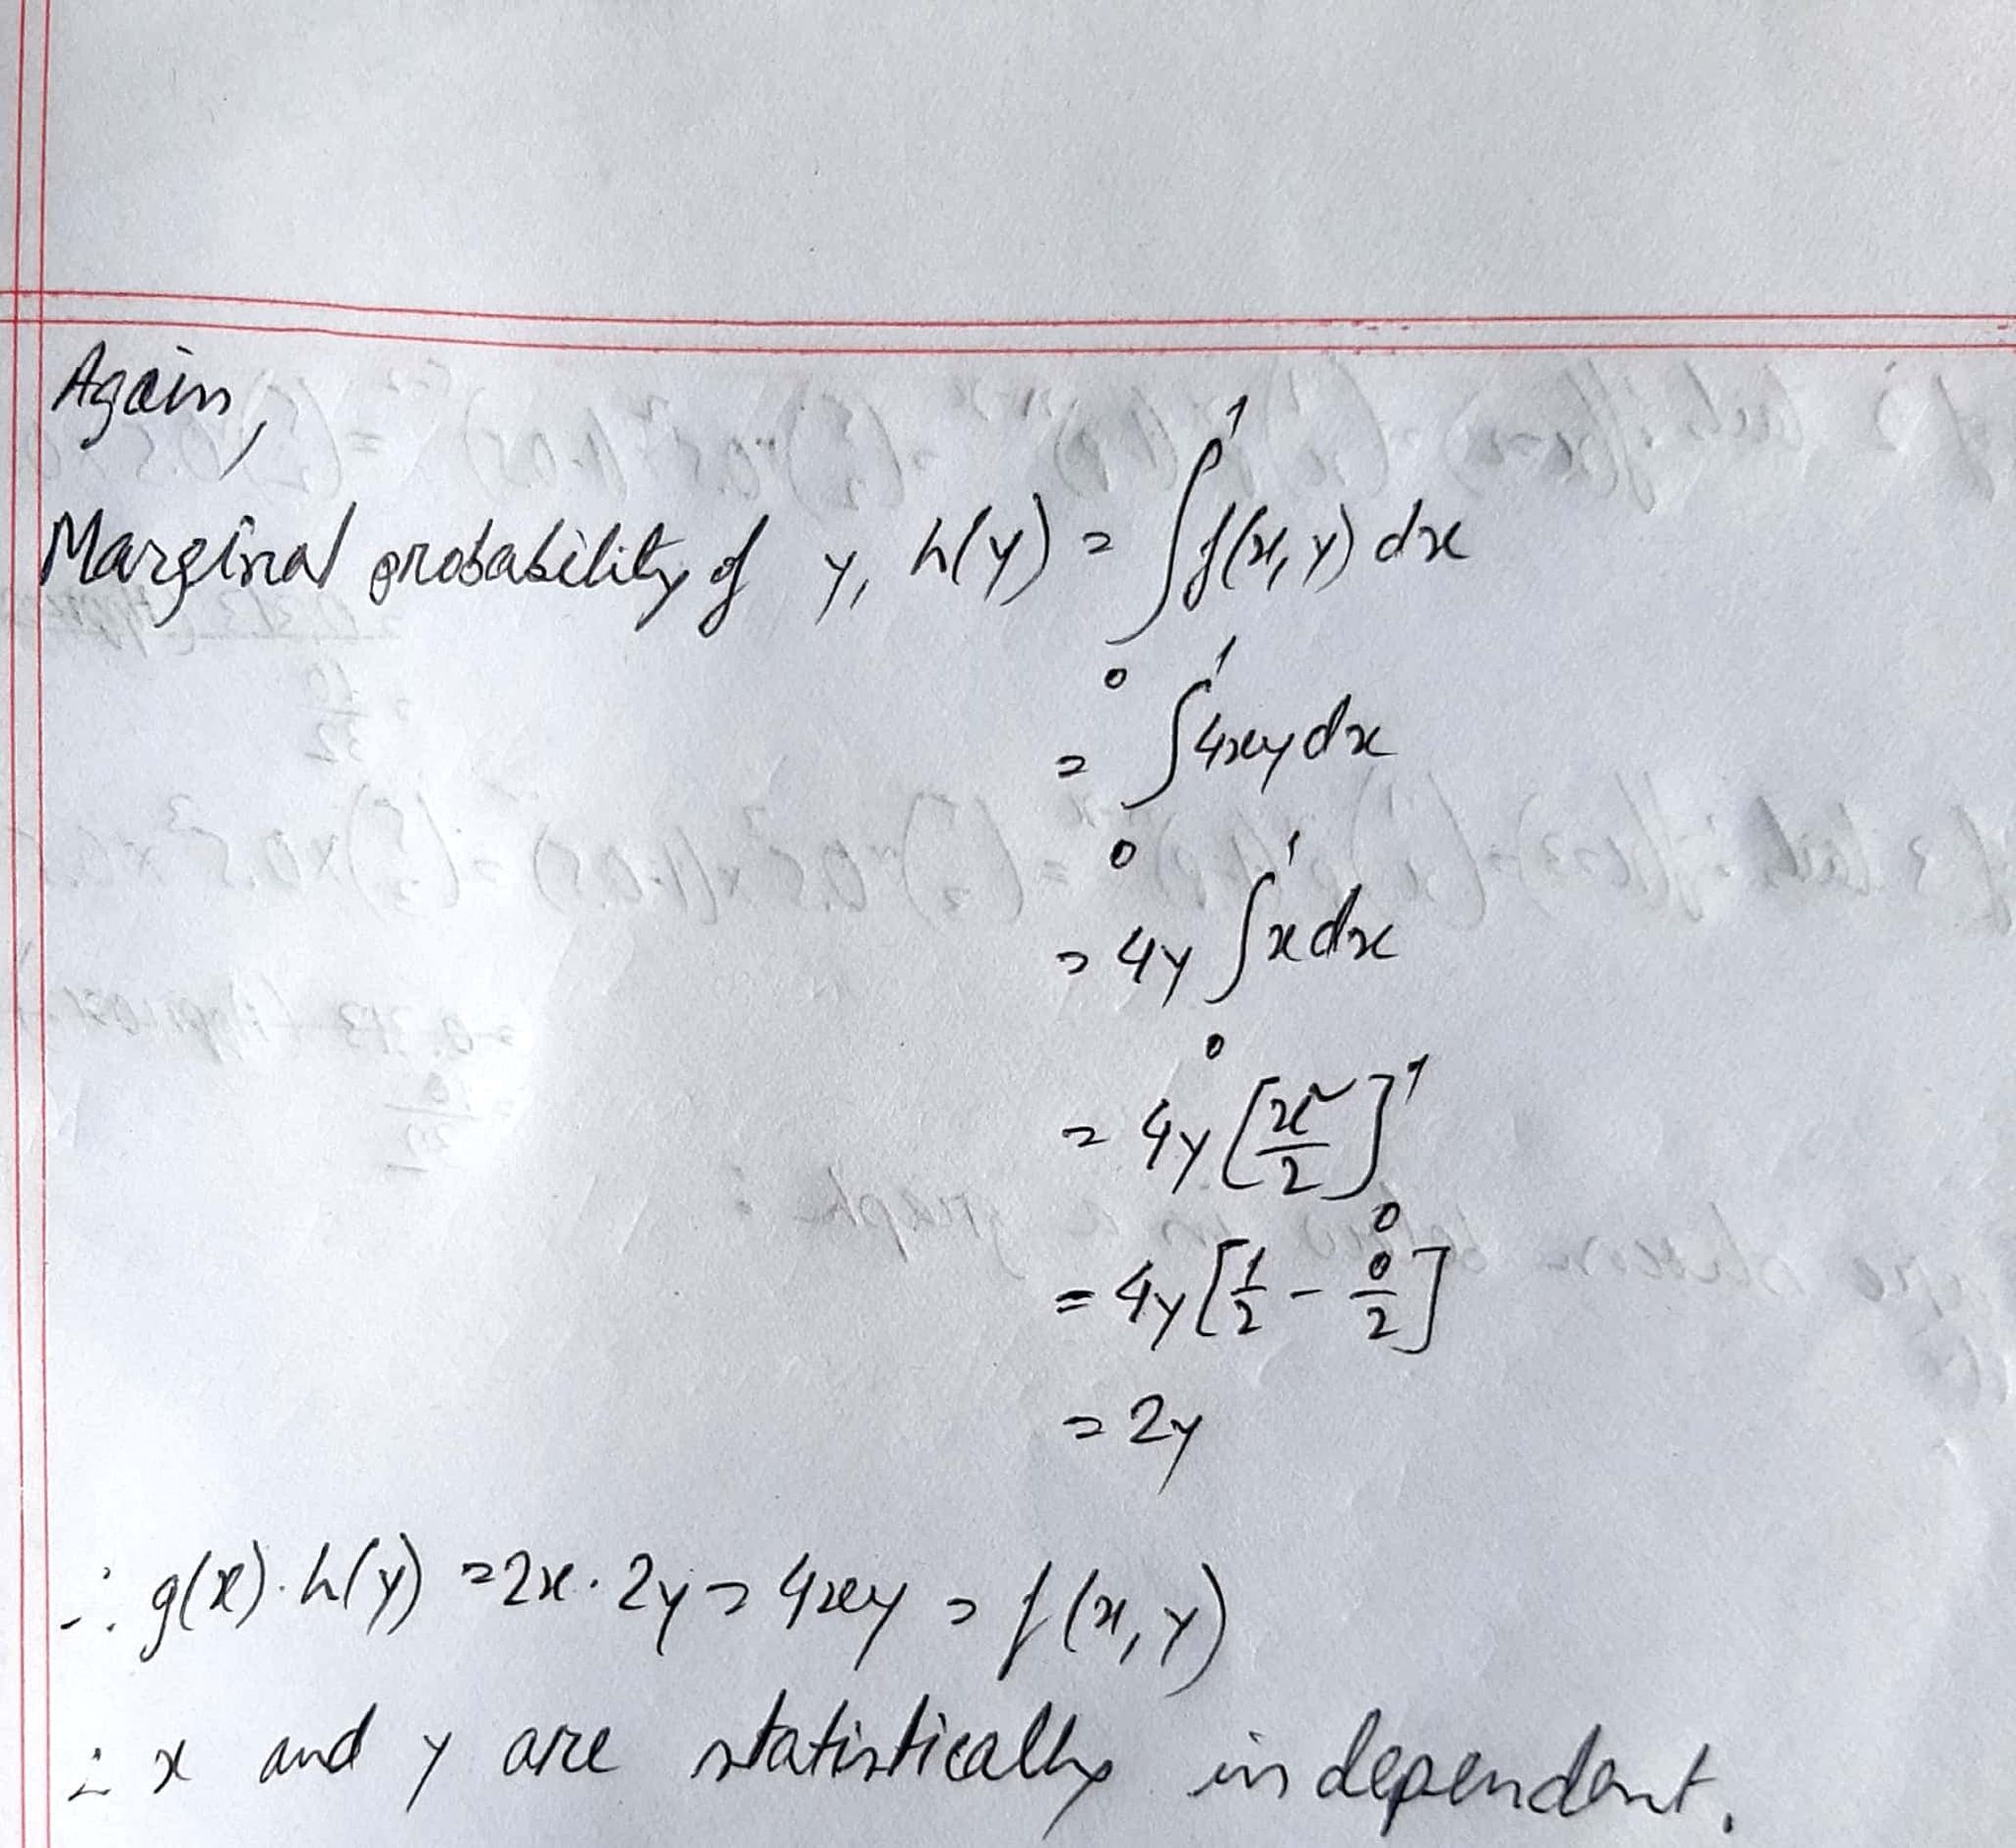 Again,
Marginal probability of y, h(y) = ∫₀¹ f(x, y) dx
= ∫₀¹ 4xy dx
= 4y ∫₀¹ x dx
= 4y [x²/2]₀¹
= 4y [1/2 - 0/2]
= 2y
∴ g(x) . h(y) = 2x . 2y = 4xy = f(x, y)
∴ x and y are statistically independent.